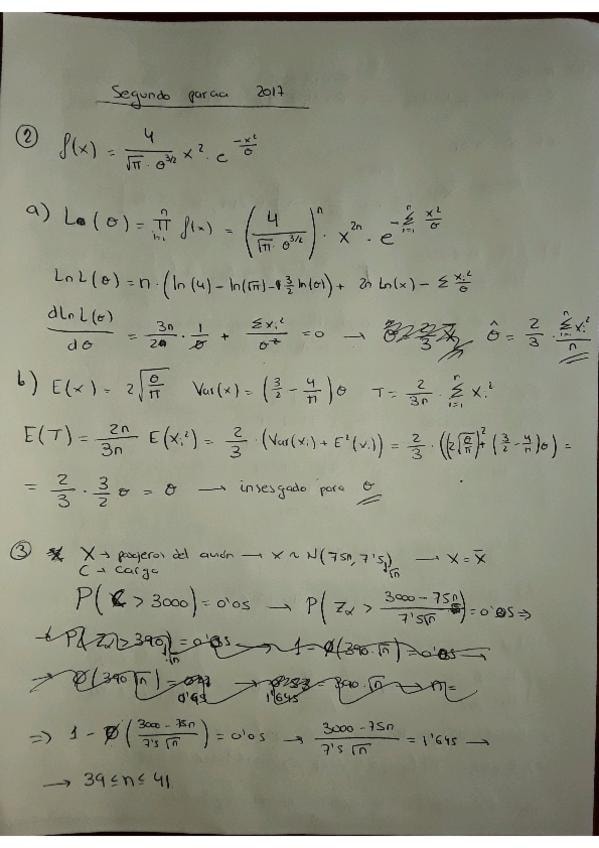 Segundo parcial 2017
② f(x) = 4/(√π · θ^(3/2)) x² · e^(-x²/θ)
a) L(θ) = ∏ f(x) = (4/(√π · θ^(3/2)))^n · x^(2n) · e^(-Σ_(i=1)^n x²/θ)
Ln L(θ) = n · (ln(4) - ln(√π) - 3/2 ln(θ)) + 2n Ln(x) - Σ xi²/θ
dLn L(θ)/dθ = 3n/2 · 1/θ + Σxi²/θ² = 0 → θ̂ = 2/3 · Σ_(i=1)^n xi²/n
b) E(x) = 2√(θ/π) Var(x) = (3/2 - 4/π)θ T = 2/3n · Σ_(i=1)^n xi²
E(T) = 2n/3n E(xi²) = 2/3 · (Var(xi) + E²(xi)) = 2/3 · ((2√(θ/π))² + (3/2 - 4/π)θ) =
= 2/3 · 3/2 θ = θ → insesgado para θ
③ X → pasajeros del avión → x ~ N(75n, 7'5√n) → X = x̄
C → carga
P(C > 3000) = 0'05 → P(Zα > (3000 - 75n)/(7'5√n)) = 0'05 ⇒
⇒ 1 - Φ((3000 - 75n)/(7'5√n)) = 0'05 → (3000 - 75n)/(7'5√n) = 1'645 →
→ 39 ≤ n ≤ 41